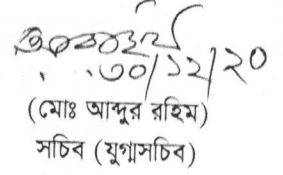 ৩০/১২/২০
(মোঃ আব্দুর রহিম)
সচিব (যুগ্মসচিব)